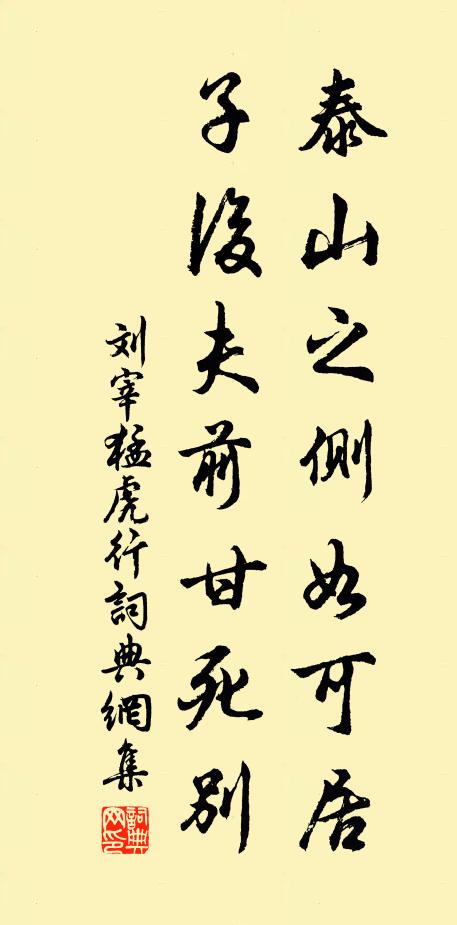 泰山之側如可居
子後夫前甘死別
刘宰猛虎行詞典網集
詞典網印